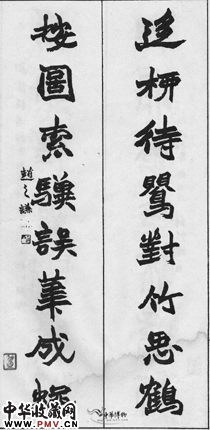 迻桺待鸎對竹思鶴
按圖索驥誤筆成蠅
趙之謙
中华收藏网
www.PMV.cn